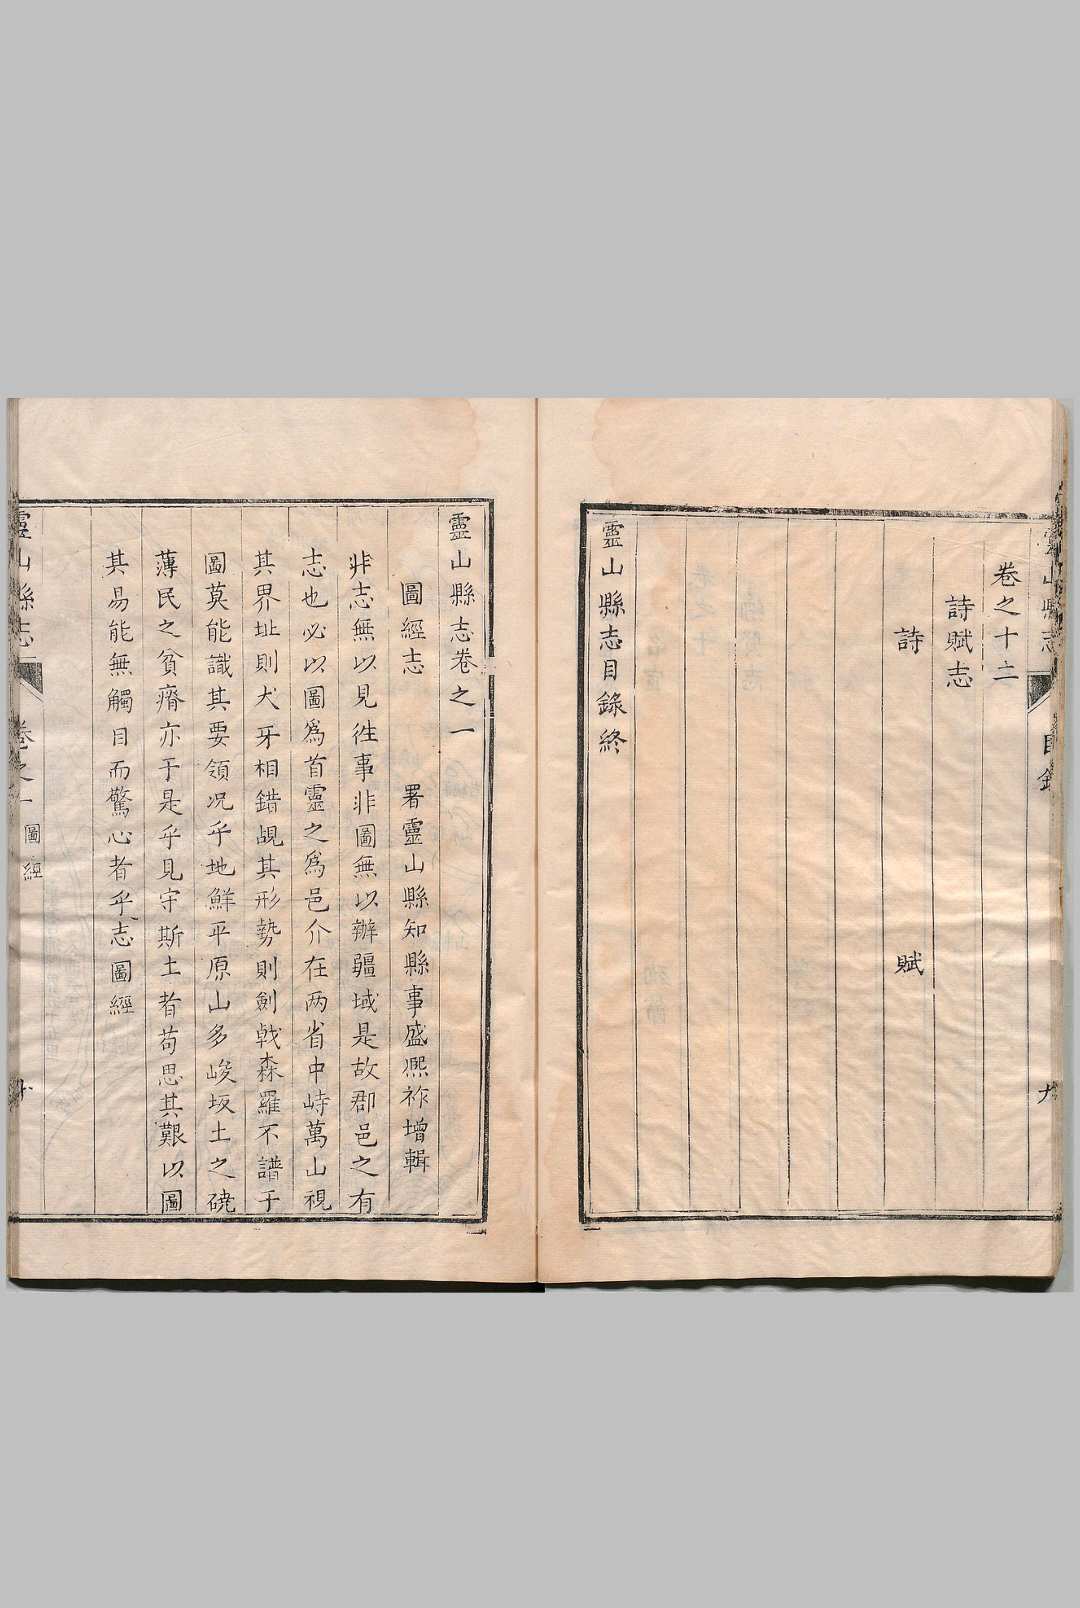 靈山縣志 目錄 九
卷之十二
詩賦志
詩 賦
靈山縣志目錄終
靈山縣志卷之一
圖經志 署靈山縣知縣事盛熙祚增輯
非志無以見徃事非圖無以辦疆域是故郡邑之有
志也必以圖爲首靈之爲邑介在两省中峙萬山視
其界址則犬牙相錯覘其形勢則劍戟森羅不譜于
圖莫能識其要領况乎地鮮平原山多峻坂土之磽
薄民之貧瘠亦于是乎見守斯土者苟思其艱以圖
其易能無觸目而驚心者乎志圖經
靈山縣志 卷之一 圖經